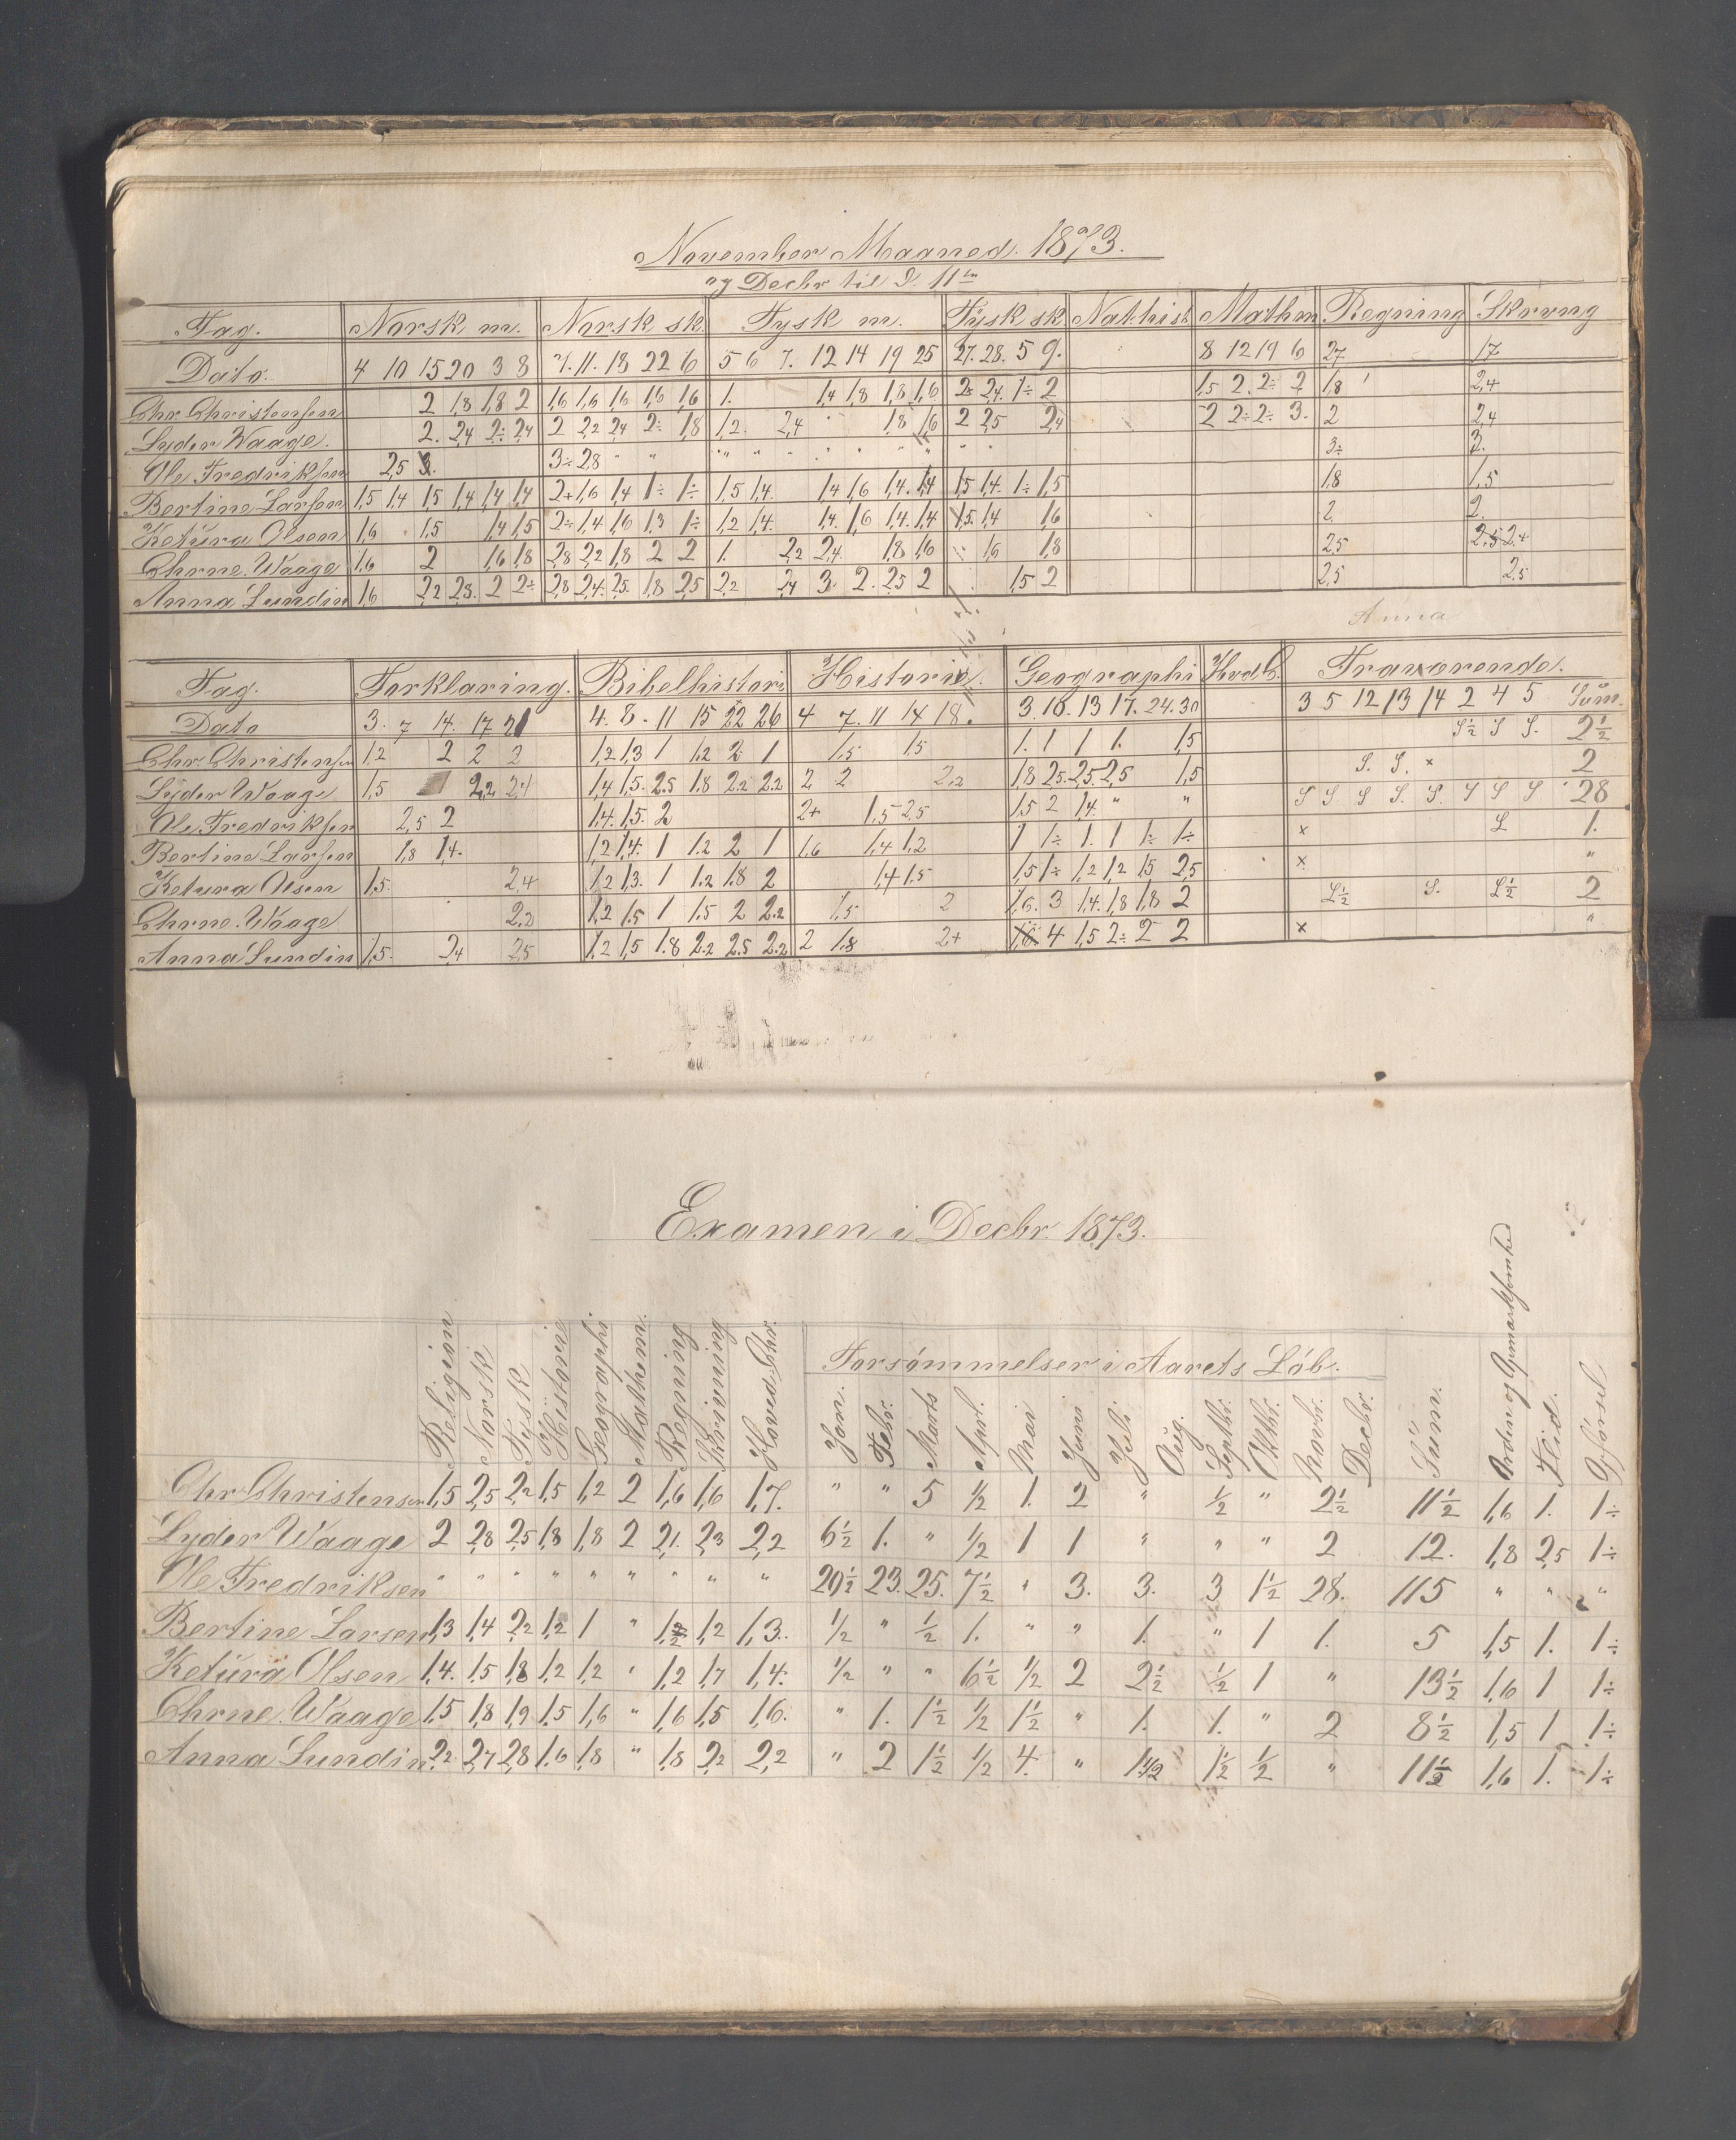 November Maaned. 1873.
og Decbr til d. 11te
Fag. Norsk m. Norsk sk. Tysk m. Tysk sk Nat.hist. Mathm Regning Skrvng
Dato. 4 10 15 20 3 8 7. 11. 18 22 6 5 6 7. 12 14 19 25 27. 28. 5 9. 8 12 19 6 27 17
Chr. Christensen 2 1,8 1,8 2 1,6 1,6 1,6 1,6 1,6 1. 1,4 1,8 1,8 1,6 2,4 1÷ 2 1,5 2. 2÷ 2 1,8 2,4
Lyder Waage. 2. 2,4 2÷ 2,4 2 2,2 2,4 2÷ 1,8 1,2. 2,4 1,8 1,6 2 2,5 2,4 2 2÷ 2÷ 3. 2 2,4
Ole Fredriksen 2,5 3. 3÷ 2,8 " " 3÷ 3.
Bertine Larsen 1,5 1,4 1,5 1,4 1,4 1,4 2+ 1,6 1,4 1÷ 1÷ 1,5 1,4. 1,4 1,6 1,4. 1,4 1,5 1,4. 1÷ 1,5 1,8 1,5
Ketura Olsen 1,6 1,5 1,4 1,5 2÷ 1,4 1,6 1,3 1÷ 1,2 1,4. 1,4. 1,6 1,4. 1,4 1,5. 1,4 1,6 2. 2.
Chrne. Waage 1,6 2 1,6 1,8 2,8 2,2 1,8 2 2 1. 2,2 2,4. 1,8 1,6 1,6 1,8 2,5 2,5 2+
Anna Lundin 1,6 2,2 2,8. 2 2÷ 2,8 2,4. 2,5. 1,8 2,5 2,2 2,4 3. 2. 2,5 2 1,5 2 2,5 2,5
Anna
Fag. Forklaring. Bibelhistori Historie. Geographi Hvd C. Fraværende.
Dato 3. 7 14. 17 21 4. 8. 11 15 22 26 4 7. 11 14 18. 3. 10. 13 17. 24. 30 3 5 12 13 14 2 4 5 Sum.
Chr. Christensen 1,2 2 2 2 1,2 1,3 1 1.2 2 1 1,5 1,5 1. 1 1 1. 1,5 S½ S S. 2½
Lyder Waage 1,5 2,2 2,4 1,4 1,5. 2.5 1.8 2.2 2.2 2 2 2,2 1,8 2,5. 2,5. 2,5 1,5 S. S. × 2
Ole Fredriksen 2,5 2 1,4. 1,5. 2 2+ 1,5 2,5 1,5 2 1,4. " " S S S S. S. S S S 28
Bertine Larsen 1,8 1,4. 1,2 1,4. 1 1.2 2 1 1,6 1,4 1,2 1 1÷ 1. 1 1÷ 1÷ × S 1.
Ketura Olsen 1,5. 2,4 1,2 1,3. 1 1.2 1.8 2 1,4 1,5 1,5 1÷ 1,2 1,2 1,5 2,5 × "
Chrne. Waage 2,2 1,2 1,5 1 1.5 2 2.2 1,5 2 1,6. 3 1,4. 1,8 1,8 2 S½ S. S½ 2
Anna Lundin 1,5. 2,4 2,5 1,2 1,5 1.8 2.2 2.5 2.2 2 1,8 2+ 4 1,5 2÷ 2 2 × "
Examen i Decbr. 1873.
Forsömmelser i Aarets Löb.
Religion Norsk Tysk Historie Geographi Mathem. Regning Skrivning Hoved-Chr. Jan. Febr. Marts Aprl. Mai Juni Juli Aug. Septbr. Oktbr. Novbr. Decbr. Sum. Orden og Opmærksomhed Flid. Opförsel
Chr. Christensen 1,5 2,5 2,2 1,5 1,2 2 1,6 1,6 1,7. " " 5 ½ 1. 2 " ½ " 2½ 11½ 1,6 1. 1÷
Lyder Waage 2 2,8 2,5 1,8 1,8 2 2,1. 2,3 2,2 6½ 1. " ½ 1 1 " " " 2 12. 1,8 2,5 1÷
Ole Fredriksen " " " " " " " " " 20½ 23. 25. 7½ " 3. 3. 3 1½ 28. 115 " " "
Bertine Larsen 1,3 1,4 2,2 1,2 1 " 1,2 1,2 1,3. ½ " ½ 1. " " 1. " 1 1. 5 1,5 1. 1÷
Ketura Olsen 1,4. 1,5 1,8 1,2 1,2 " 1,2 1,7 1,4. ½ " " 6½ ½ 2 2½ ½ 1 " 13½ 1,6 1 1÷
Chrne. Waage 1,5 1,8 1,9 1,5 1,6 " 1,6 1,5 1,6. " 1. 1½ ½ 1½ " 1. 1. " 2 8½ 1,5 1 1÷
Anna Lundin 2,2 2,7 2,8 1.6 1,8 " 1,8 2,2 2,2 " 2 1½ ½ 4. " 1½ 1½ ½ " 11½ 1,6 1. 1÷